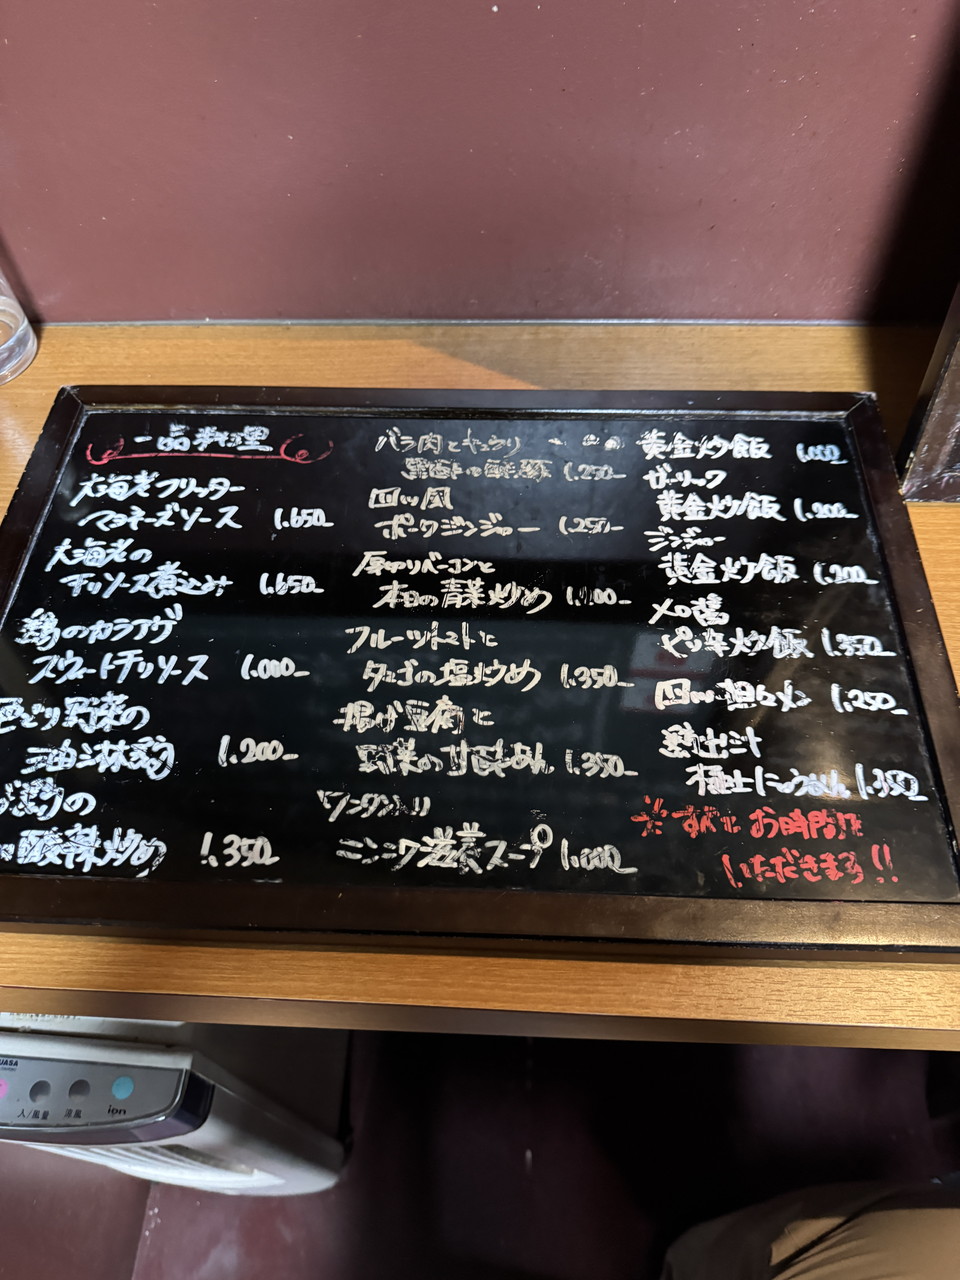 一品料理
大海老フリッター
マヨネーズソース 1.650-
大海老の
チリソース煮込み 1.650-
鶏のカラアゲ
スウィートチリソース 1.000-
野菜の
1.200-
鶏の
酸辣炒め 1.350-
バラ肉とキュウリ
1.250-
四川風
ポークジンジャー 1.250-
厚切りベーコンと
本日の青菜炒め
フルーツトマトと
タマゴの塩炒め 1.350-
揚げ豆腐と
野菜の甘酢あん 1.350-
ワンタン入り
ニンニク滋養スープ 1.000-
黄金炒飯 1.000-
ガーリック
黄金炒飯 1.200-
ジンジャー
黄金炒飯 1.200-
炒飯 1.350-
四川担々メン 1.250-
極上にゅうめん 1.350
※すべてお時間
いただきます!!
入/風量
涼風
ion